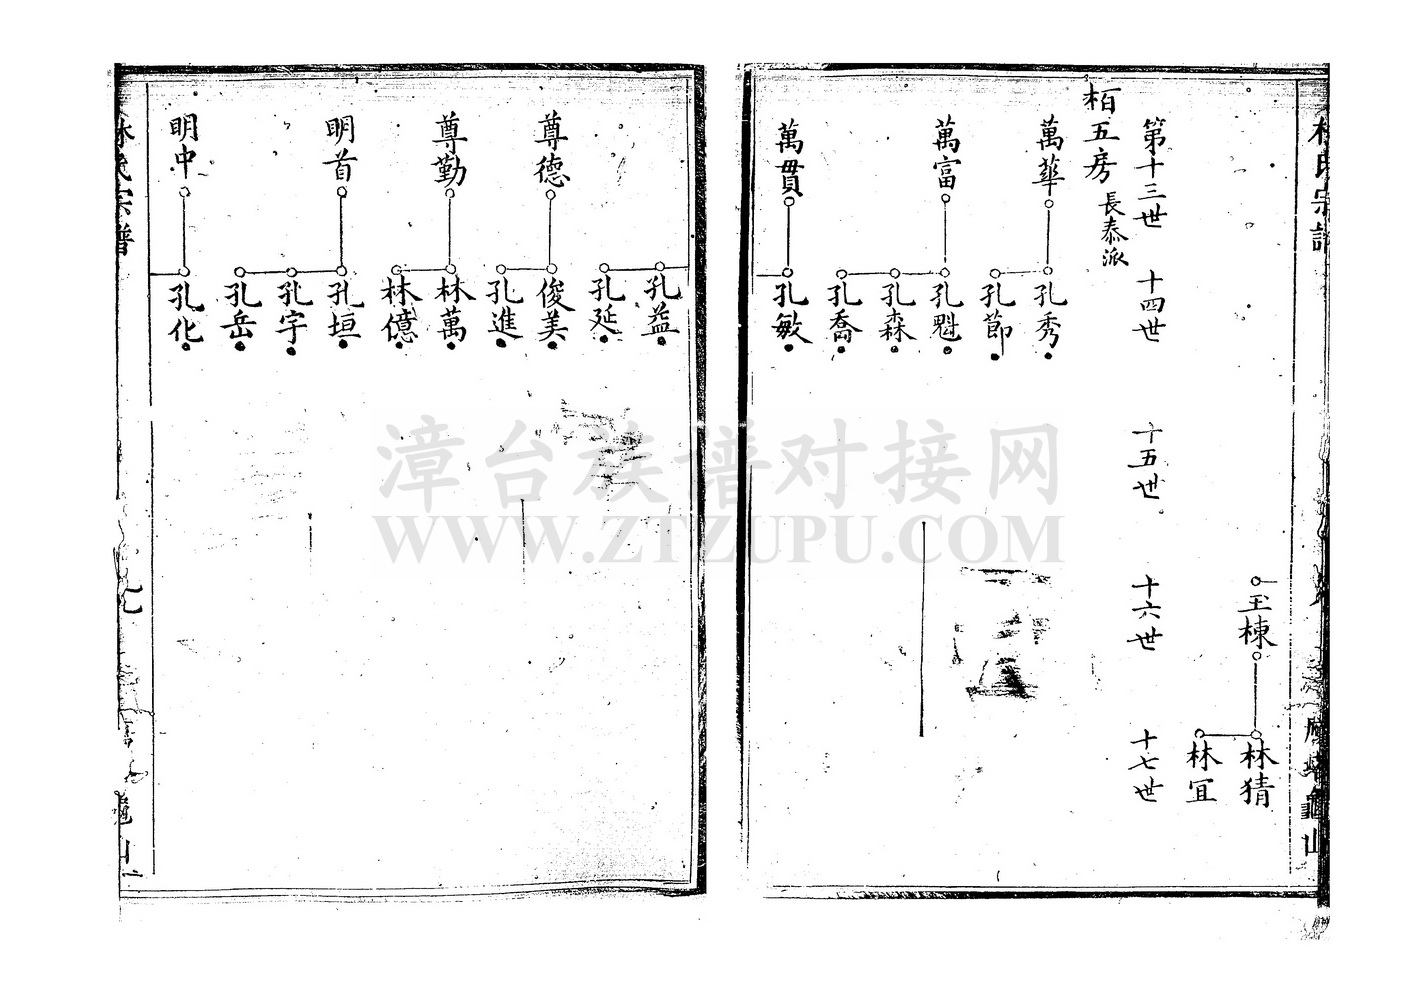 林氏宗譜
玉棟
林猜
林宜
第十三世
十四世
十五世
十六世
十七世
栢五房
長泰派
萬華
孔秀
孔節
萬富
孔魁
孔森
孔喬
萬貫
孔敏
孔益
孔延
尊德
俊美
孔進
尊勤
林萬
林億
明首
孔垣
孔字
孔岳
明中
孔化
林氏宗譜
龜山
漳台族谱对接网
WWW.ZTZUPU.COM